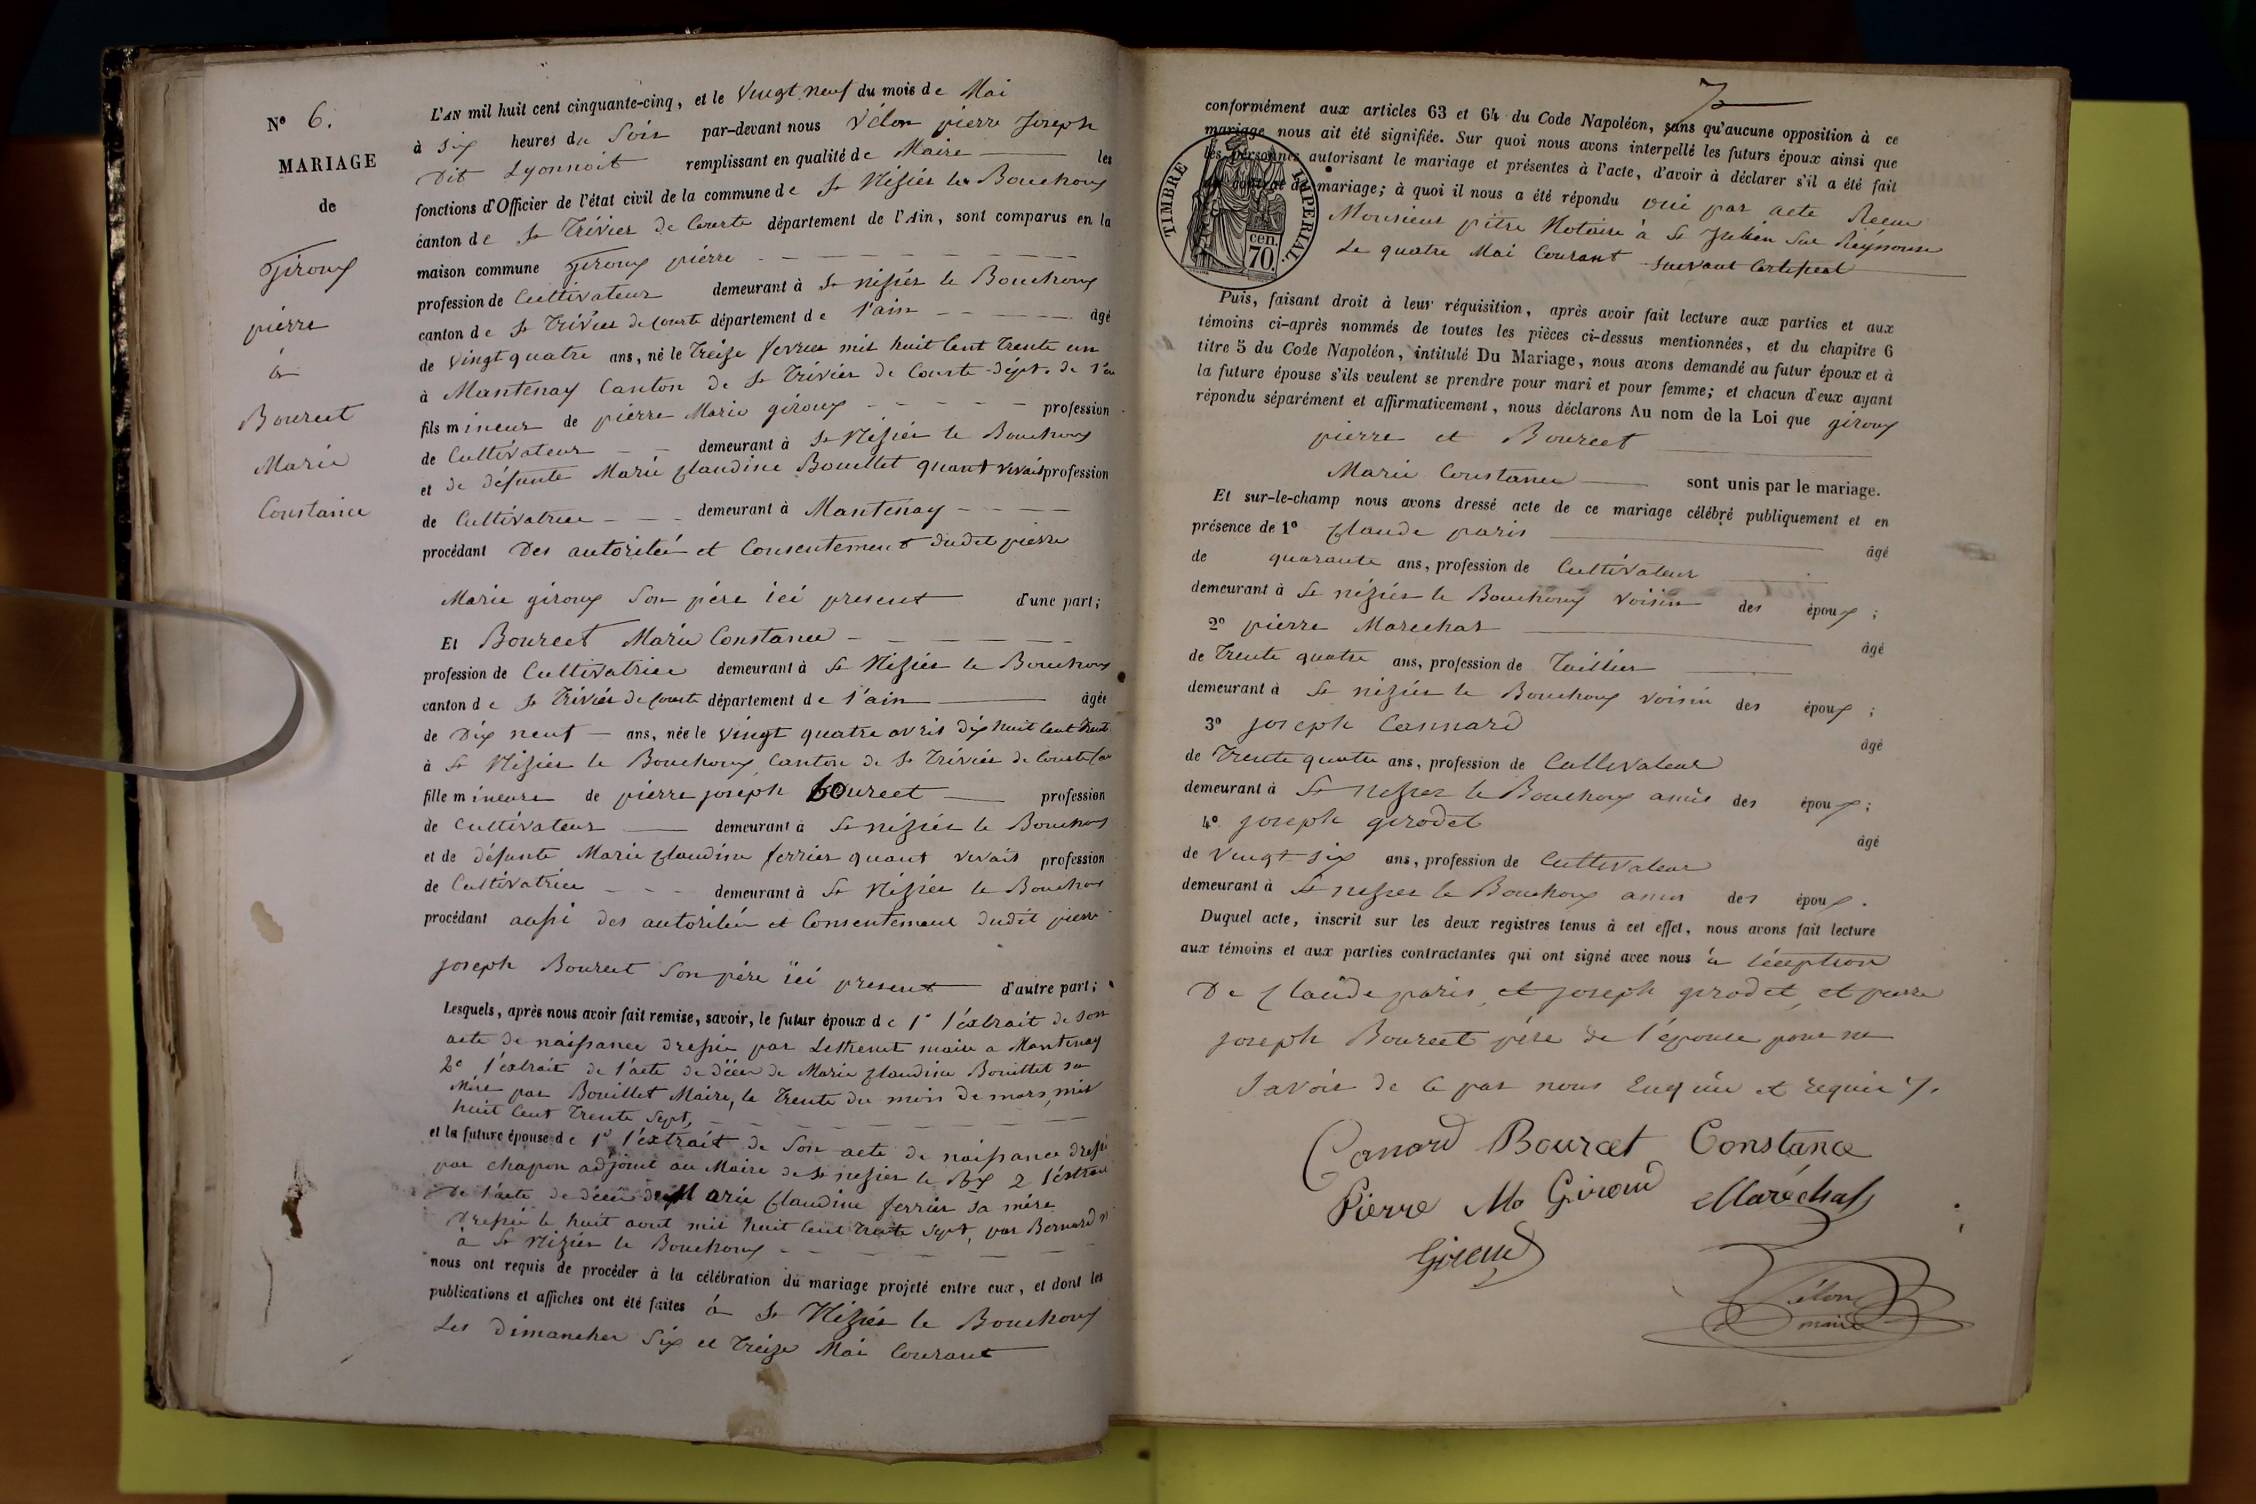 N° 6.
MARIAGE
de
Giroux
pierre
à
Bourcet
Marie
Constance
L'AN mil huit cent cinquante-cinq, et le Vingt neuf du mois de Mai
à six heures du Soir par-devant nous Vélon pierre Joseph
Dit Lyonnoit remplissant en qualité de Maire les
fonctions d'Officier de l'état civil de la commune de St Nizier le Bouchoux
canton de St Trivier de Courte département de l'Ain, sont comparus en la
maison commune Giroux pierre
profession de Cultivateur demeurant à St nizier le Bouchoux
canton de St Trivier de Courte département de l'ain âgé
de Vingt quatre ans, né le Treize fevrier mil huit Cent Trente un
à Mantenay Canton de St Trivier de Courte dépt. de l'ain
fils mineur de pierre Marie giroux profession
de Cultivateur demeurant à St Nizier le Bouchoux
et de défunte Marie Claudine Bouillet quant vivait profession
de Cultivatrice demeurant à Mantenay
procédant Des autoritée et Consentement dudit pierre
Marie giroux Son père ici present d'une part;
Et Bourcet Marie Constance
profession de Cultivatrice demeurant à St Nizier le Bouchoux
canton de St Trivier de Courte département de l'ain âgée
de Dix neuf ans, née le vingt quatre avril dix huit Cent Trente
à St Nizier le Bouchoux Canton de St Trivier de Courte
fille mineure de pierre joseph bourcet profession
de Cultivateur demeurant à St nizier le Bouchoux
et de défunte Marie Claudine ferrier quant vivait profession
de Cultivatrice demeurant à St Nizier le Bouchoux
procédant aussi des autoritée et Consentement dudit pierre
joseph Bourcet Son père ici present d'autre part;
Lesquels, après nous avoir fait remise, savoir, le futur époux de 1° l'éxtrait de son
acte de naissance dressée par maire a Mantenay
2° l'éxtrait de l'acte de décée de Marie Claudine Bouillet sa
Mère par Bouillet Maire, le Trente du mois de mars, mil
huit Cent Trente Sept,
et la future épouse de 1° l'éxtrait de Son acte de naissance dressée
par chapon adjoint au Maire de St nizier le Bx 2 l'éxtrait
De l'acte de décée de Marie Claudine ferrier sa mère
Dressée le huit aout mil huit Cent Trente Sept, par Bernard
à St Nizier le Bouchoux
nous ont requis de procéder à la célébration du mariage projeté entre eux, et dont les
publications et affiches ont été faites à St Nizier le Bouchoux
Les Dimanches Six et Treize Mai Courant
7
conformément aux articles 63 et 64 du Code Napoléon, sans qu'aucune opposition à ce
mariage nous ait été signifiée. Sur quoi nous avons interpellé les futurs époux ainsi que
les personnes autorisant le mariage et présentes à l'acte, d'avoir à déclarer s'il a été fait
un contrat de mariage; à quoi il nous a été répondu oui par acte Recue
Monsieur pitre Notaire à St Julien Sur Reyssouse
Le quatre Mai Courant Suivant Certificat
TIMBRE IMPERIAL.
70 cen.
Puis, faisant droit à leur réquisition, après avoir fait lecture aux parties et aux
témoins ci-après nommés de toutes les pièces ci-dessus mentionnées, et du chapitre 6
titre 5 du Code Napoléon, intitulé Du Mariage, nous avons demandé au futur époux et à
la future épouse s'ils veulent se prendre pour mari et pour femme; et chacun d'eux ayant
répondu séparément et affirmativement, nous déclarons Au nom de la Loi que giroux
pierre et Bourcet
Marie Constance sont unis par le mariage.
Et sur-le-champ nous avons dressé acte de ce mariage célébré publiquement et en
présence de 1° Claude paris âgé
de quarante ans, profession de Cultivateur
demeurant à St nizier le Bouchoux voisin des époux;
2° pierre Marechal âgé
de Trente quatre ans, profession de Taillier
demeurant à St nizier le Bouchoux voisin des époux;
3° joseph Cannard âgé
de Trente quatre ans, profession de Cultivateur
demeurant à St nizier le Bouchoux amis des époux;
4° joseph girodet âgé
de vingt six ans, profession de Cultivateur
demeurant à St nizier le Bouchoux amis des époux.
Duquel acte, inscrit sur les deux registres tenus à cet effet, nous avons fait lecture
aux témoins et aux parties contractantes qui ont signé avec nous à léception
De Claude paris, et joseph girodet, et pierre
joseph Bourcet père de l'épouse pour ne
Savoir de Ce par nous Enquis et requis %.
Canard Bourcet Constance
Pierre Me Giroud Maréchal
Giroud
Vélon
maire